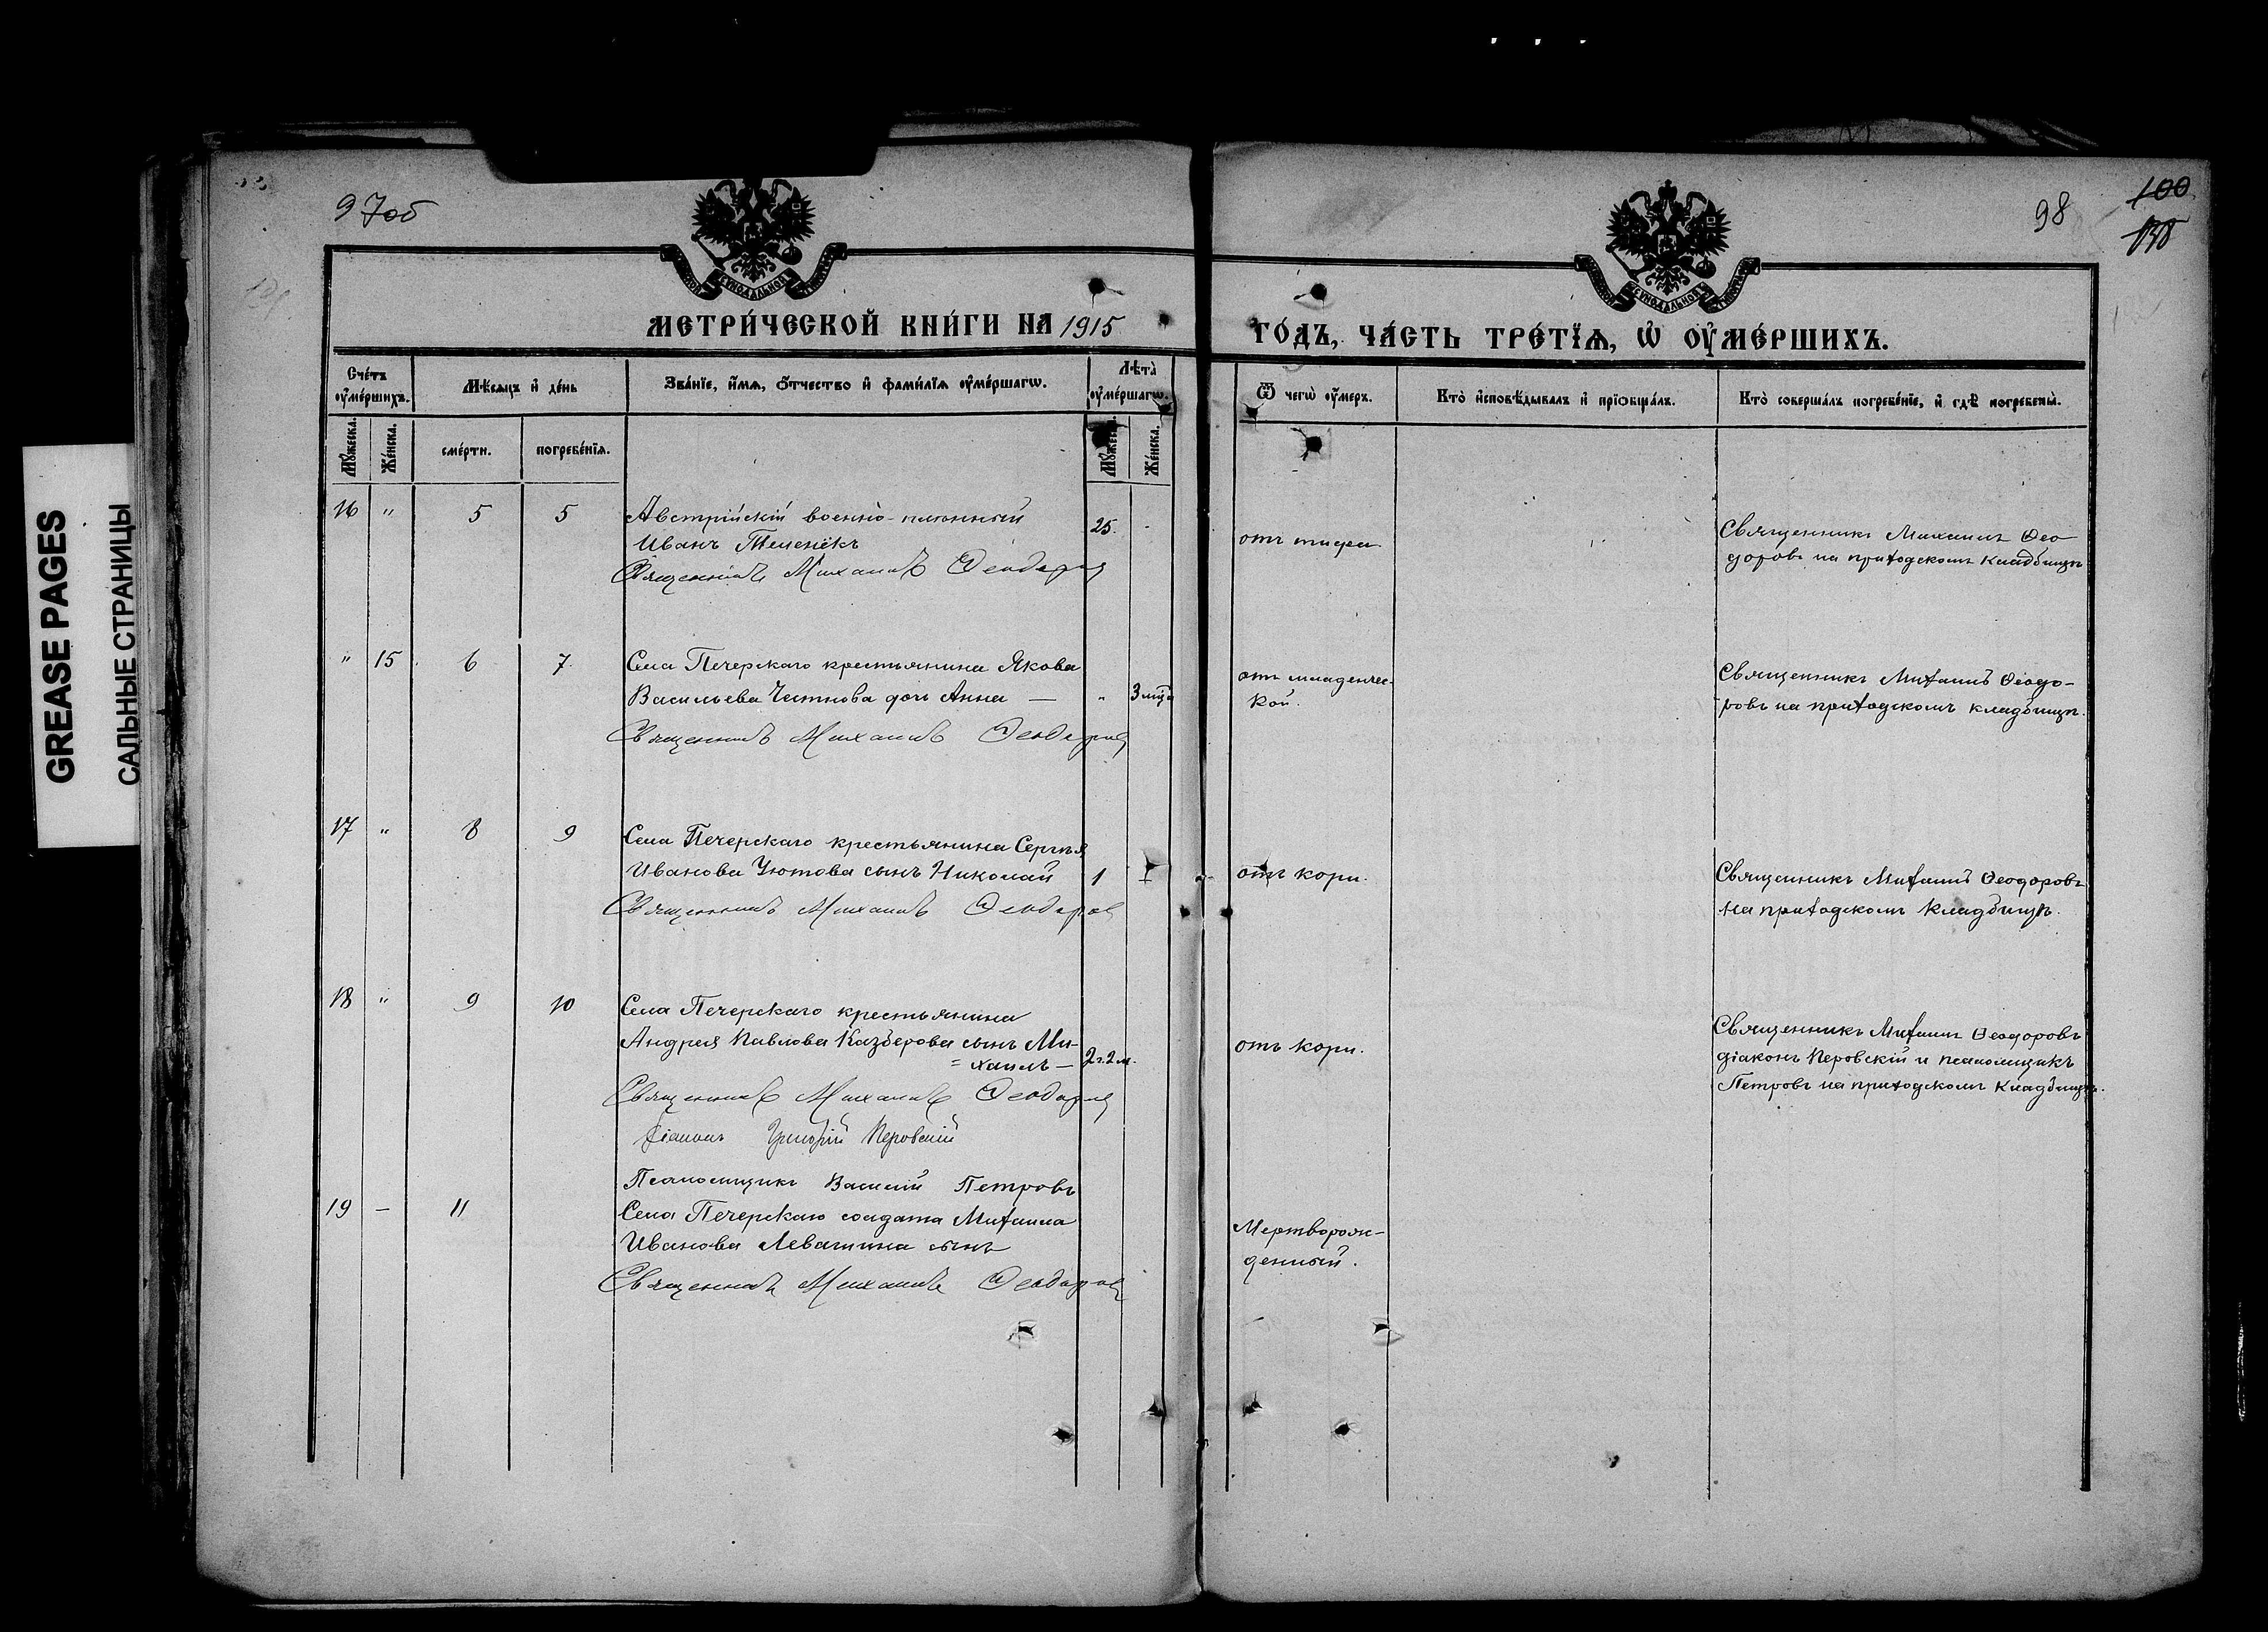 97об
98
100
GREASE PAGES
САЛЬНЫЕ СТРАНИЦЫ
МЕТРИ́ЧЕСКОЙ КНИ́ГИ НА 1915
ГО́ДЪ, ЧА́СТЬ ТРЕ́ТЇѦ, Ѡ҆ ОУ҆МЕ́РШИХЪ.
Сче́тъ оу҆ме́ршихъ.
Мѣ́сѧцъ и҆ де́нь
Зва́нїе, и҆́мѧ, ѻ҆́тчество и҆ фами́лїѧ оу҆ме́ршагѡ.
Лѣ́та оу҆ме́ршагѡ.
Ѿ чегѡ̀ оу҆́меръ.
Кто̀ и҆сповѣ́дывалъ и҆ прїѻбща́лъ.
Кто̀ соверша́лъ погребе́нїе, и҆ гдѣ̀ погребены̀.
Мꙋ́жеска.
Же́нска.
сме́рти.
погребе́нїѧ.
Мꙋ́жеска.
Же́нска.
16 " 5 5 Австрійскій военно-плѣнный
Иванъ 25. -
Священникъ Михаилъ Ѳеодоровъ
отъ тифа.
Священникъ Михаилъ Ѳео
доровъ на приходскомъ кладбищѣ
" 15 6 7 Села Печерскаго крестьянина Якова
Васильева Честнова дочь Анна — " 3 мѣц
Священникъ Михаилъ Ѳеодоровъ
отъ младенчес-
кой.
Священникъ Михаилъ Ѳеодо-
ровъ на приходскомъ кладбищѣ.
17 " 8 9 Села Печерскаго крестьянина Сергѣя
Иванова Уютова сынъ Николай 1
Священникъ Михаилъ Ѳеодоровъ
отъ кори.
Священникъ Михаилъ Ѳеодоровъ
на приходскомъ кладбищѣ.
18 " 9 10 Села Печерскаго крестьянина
Андрея Павлова Казберова сынъ Ми-
= хаилъ — 2 г. 2 м.
Священникъ Михаилъ Ѳеодоровъ
Діаконъ Григорій Перовскій
Псаломщикъ Василій Петровъ
отъ кори.
Священникъ Михаилъ Ѳеодоровъ
діаконъ Перовскій и псаломщикъ
Петровъ на приходскомъ кладбищѣ.
19 — 11 Села Печерскаго солдата Михаила
Иванова Левашина сынъ
Священникъ Михаилъ Ѳеодоровъ
Мертворож-
денный.